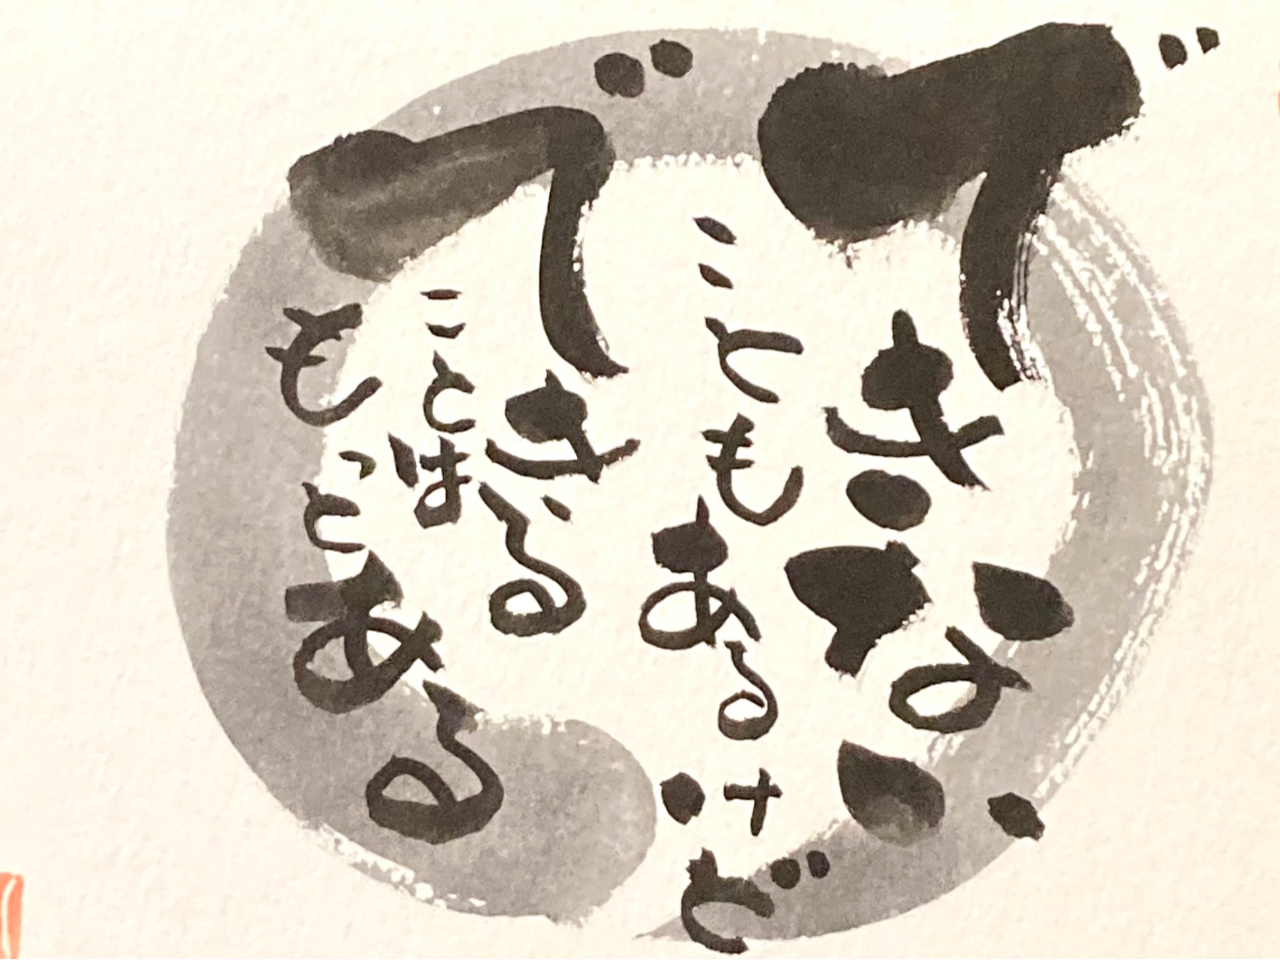 できない
こともあるけど
できる
ことは
もっとある